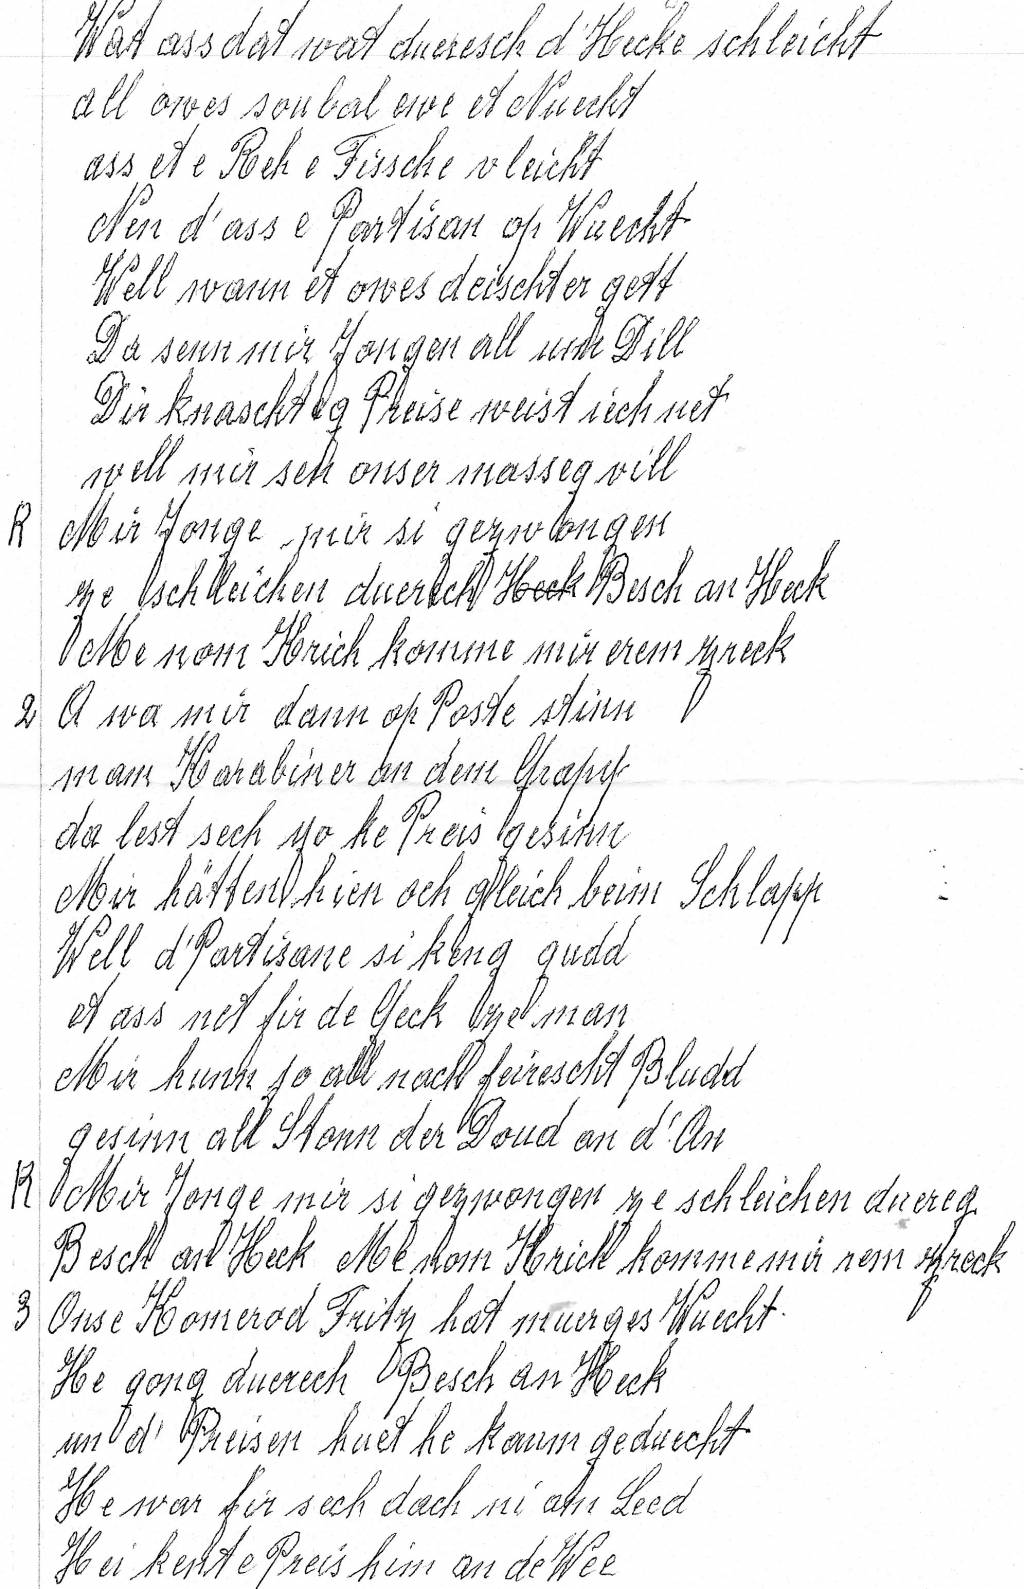 Wat ass dat wat dueresch d'Hecke schleicht
all owes soubal ewe et Nuecht
ass et e Reh e Fissche vleicht
Nen d'ass e Partisan op Wuecht
Well wann et owes deischter gett
Da senn mir Jongen all um Dill
Dir knaschteg Preise weist iech net
well mir seh onser masseg vill
R Mir Jonge mir si gezwongen
ze schleichen duerech Heck Besch an Heck
Me nom Krich komme mir erem zreck
2 A wa mir dann op Poste stinn
mam Karabiner an dem Grapp
da lest sech jo ke Preis gesinn
Mir hätten hien och gleich beim Schlapp
Well d'Partisane si keng gudd
et ass net fir de Geck ze man
Mir hunn jo all nach feirescht Bludd
gesinn all Stonn der Doud an d'An
R Mir Jonge mir si gezwongen ze schleichen duereg
Besch an Heck Me nom Krich komme mir rem zreck
3 Onse Komerod Fritz hat muerges Wuecht.
He gong duerech Besch an Heck
un d'Preisen huet he kaum geduecht
He war fir sech dach ni am Leed
Hei kent e Preis him an de Wee